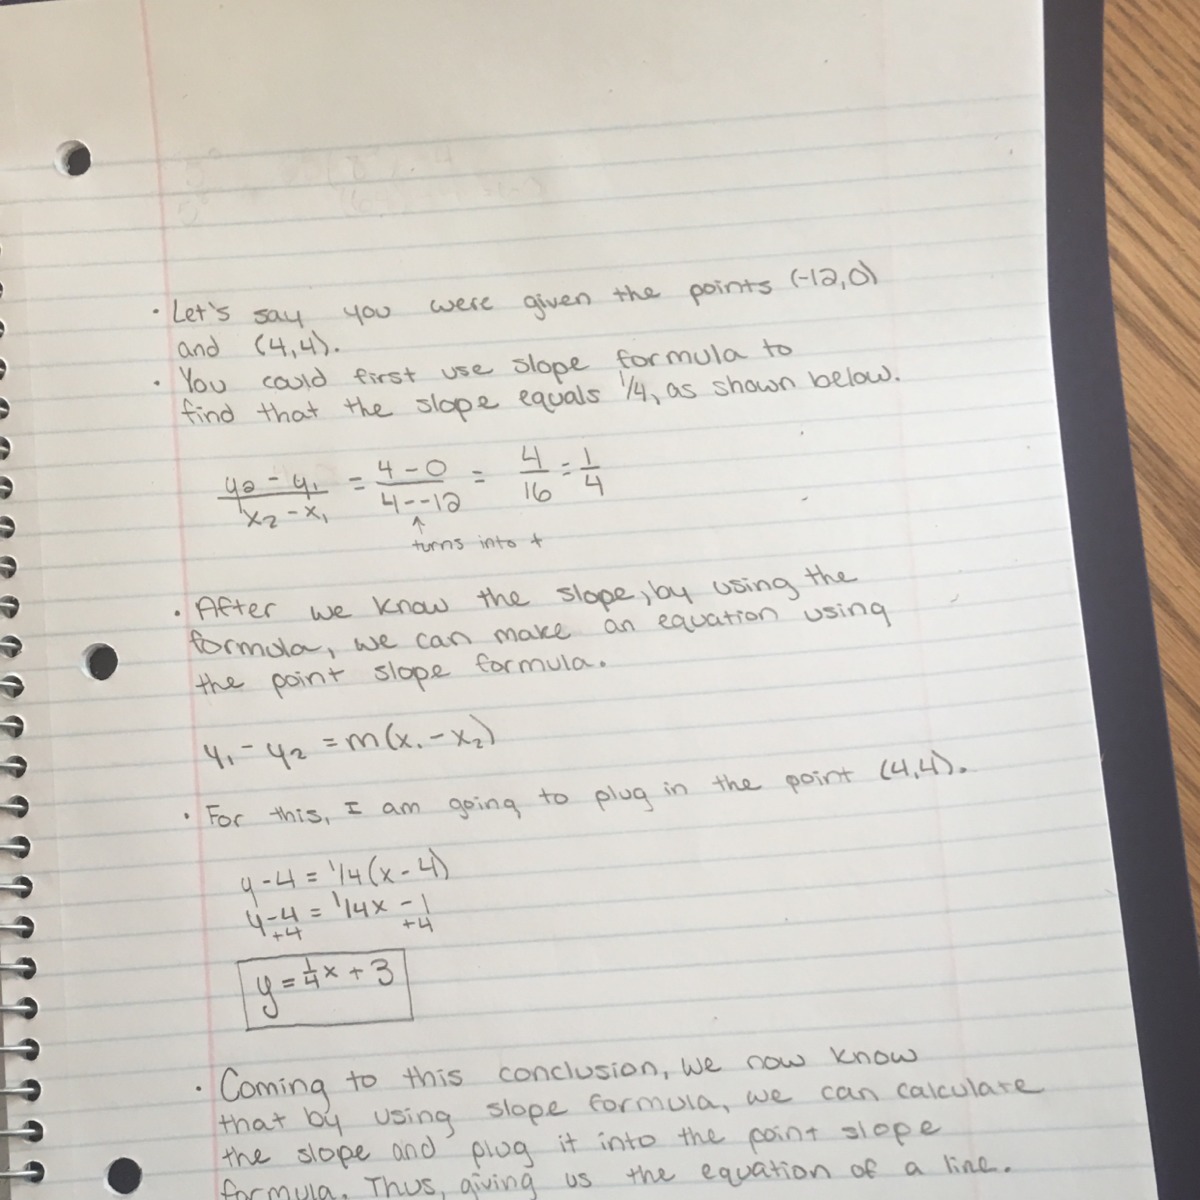 • Let's say you were given the points (-12,0)
and (4,4).
• You could first use slope formula to
find that the slope equals 1/4, as shown below.
y2 - y1 / x2 - x1 = 4 - 0 / 4 - -12 = 4/16 = 1/4
↑
turns into +
• After we know the slope, by using the
formula, we can make an equation using
the point slope formula.
y1 - y2 = m(x1 - x2)
• For this, I am going to plug in the point (4,4).
y - 4 = 1/4(x - 4)
y - 4 = 1/4x - 1
+4 +4
y = 1/4x + 3
• Coming to this conclusion, we now know
that by using slope formula, we can calculate
the slope and plug it into the point slope
formula. Thus, giving us the equation of a line.